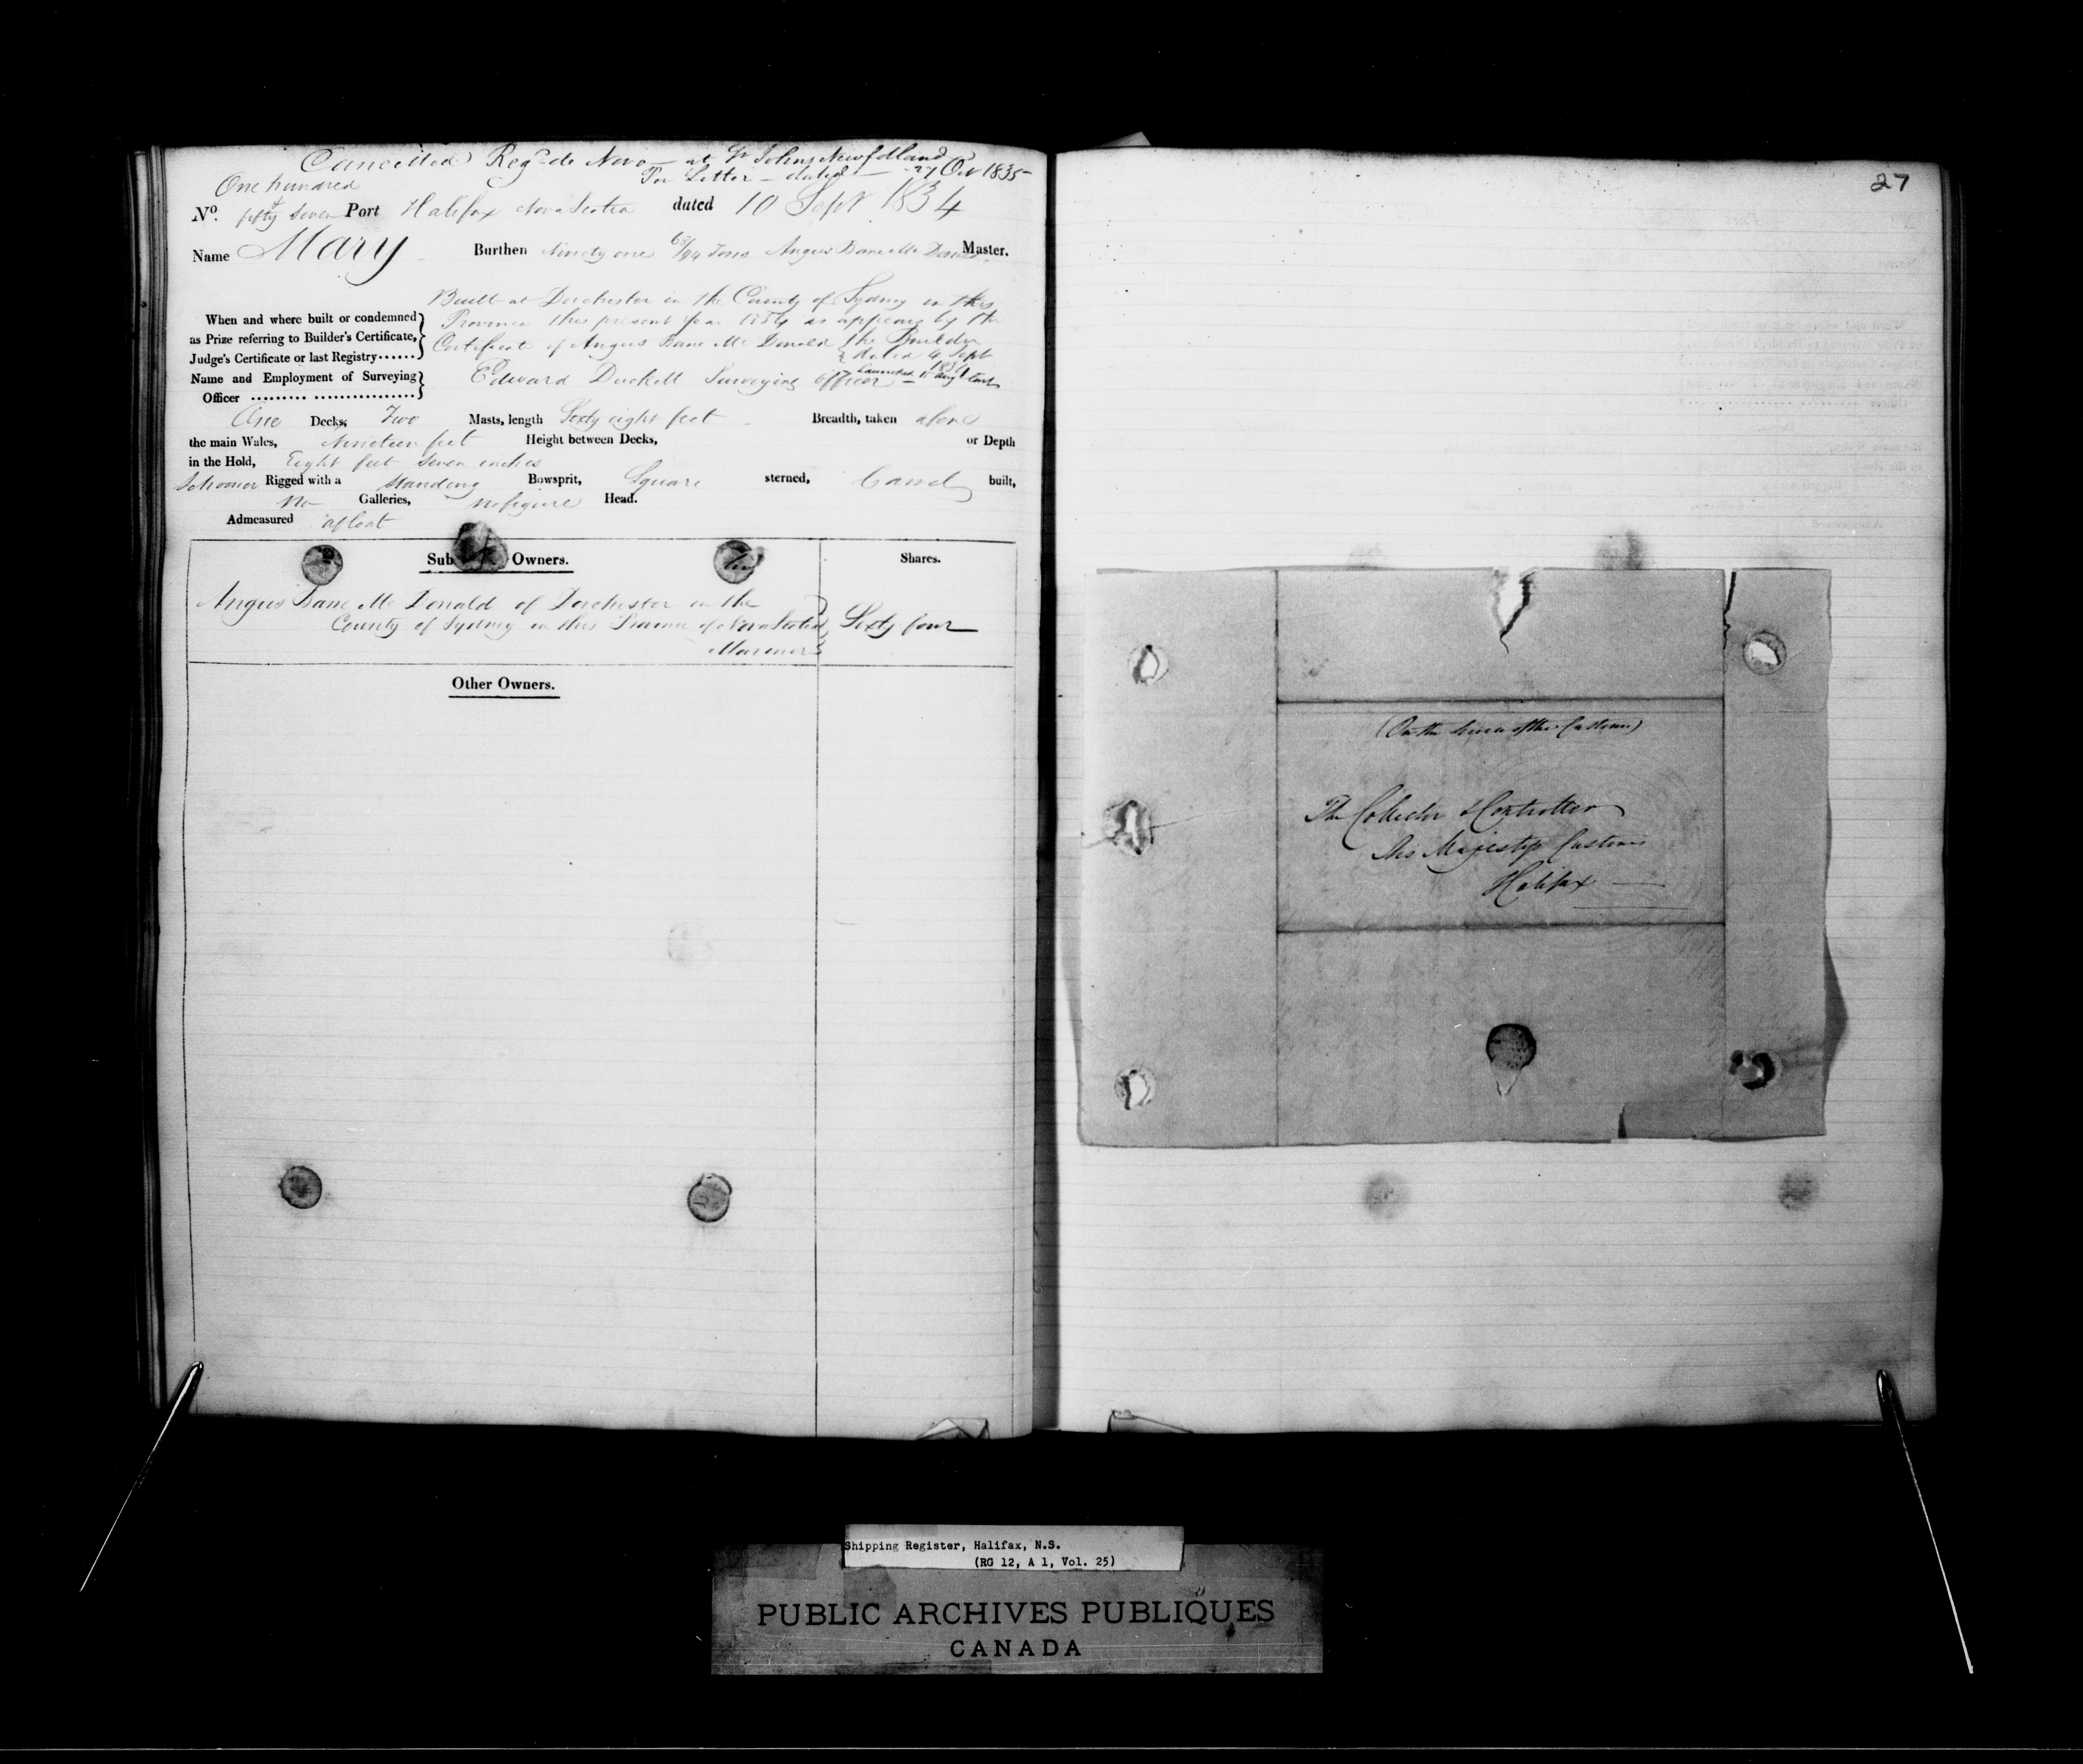 Cancelled Regd de Novo — at St Johns Newfdland
Per Letter — dated — 27 Oct 1835 —
One hundred
No. & fifty seven Port Halifax Nova Scotia dated 10 Sept 1834
Name Mary Burthen Ninety one 68/94 Tons Angus Bane Mc Donald Master.
Built at Dorchester in the County of Sydney in this
When and where built or condemned Province this present year 1834 as appears by the
as Prize referring to Builder's Certificate, Certificate of Angus Bane Mc Donald the Builder
Judge's Certificate or last Registry...... dated 4 Sept
1834
Name and Employment of Surveying Edward Duckett Surveying Officer — Launched 15 Augt last
Officer
One Decks, Two Masts, length Sixty eight feet Breadth, taken above
the main Wales, Nineteen feet Height between Decks, or Depth
in the Hold, Eight feet seven inches
Schooner Rigged with a standing Bowsprit, Square sterned, Carvel built,
No Galleries, no figure Head.
Admeasured afloat
Sub Owners. Shares.
Angus Bane Mc Donald of Dorchester in the
County of Sydney in this Province of Nova Scotia Sixty four
Mariner
Other Owners.
27
(On the Service of the Customs)
The Collector & Controller
His Majestys Customs
Halifax
Shipping Register, Halifax, N.S.
(RG 12, A 1, Vol. 25)
PUBLIC ARCHIVES PUBLIQUES
CANADA